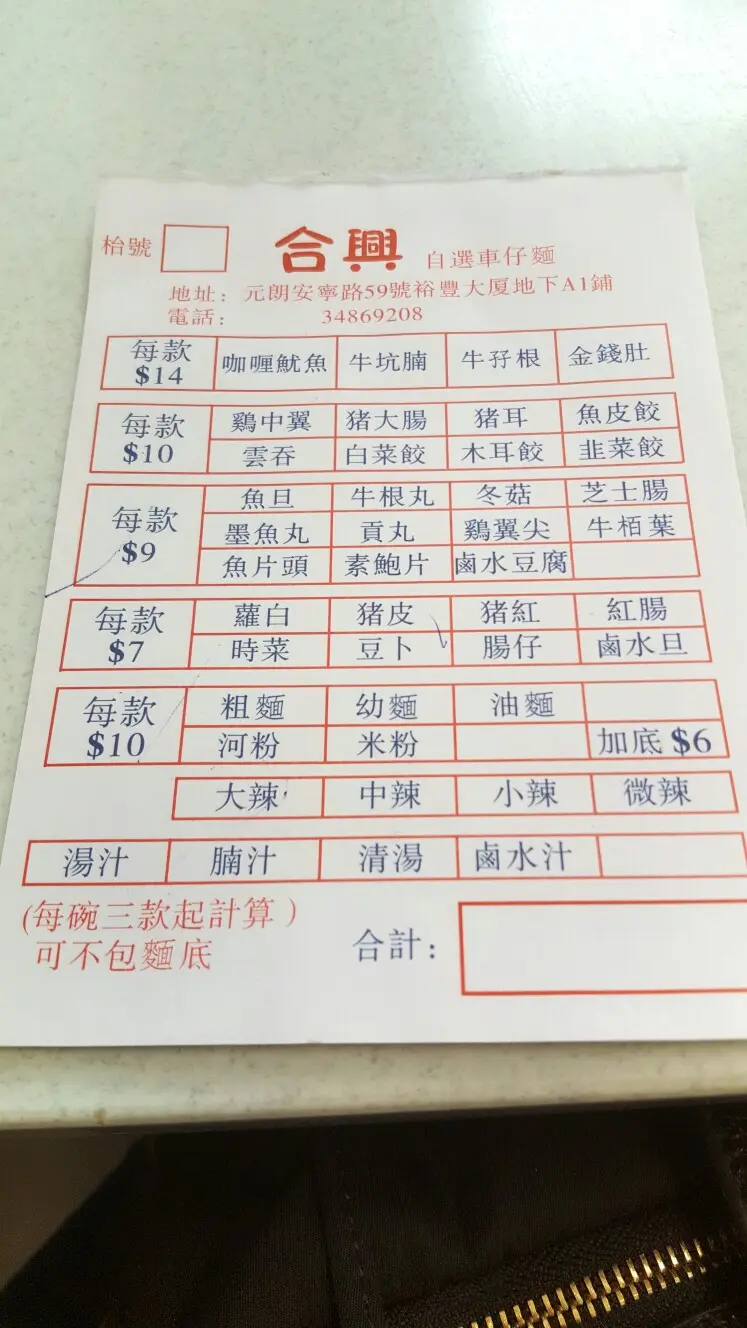 枱號 合興 自選車仔麵
地址：元朗安寧路59號裕豐大厦地下A1鋪
電話：34869208
每款 $14 咖喱魷魚 牛坑腩 牛孖根 金錢肚
每款 $10 鷄中翼 猪大腸 猪耳 魚皮餃
雲吞 白菜餃 木耳餃 韭菜餃
每款 $9 魚旦 牛根丸 冬菇 芝士腸
墨魚丸 貢丸 鷄翼尖 牛栢葉
魚片頭 素鮑片 鹵水豆腐
每款 $7 蘿白 猪皮 猪紅 紅腸
時菜 豆卜 腸仔 鹵水旦
每款 $10 粗麵 幼麵 油麵
河粉 米粉 加底 $6
大辣 中辣 小辣 微辣
湯汁 腩汁 清湯 鹵水汁
(每碗三款起計算)
可不包麵底 合計：